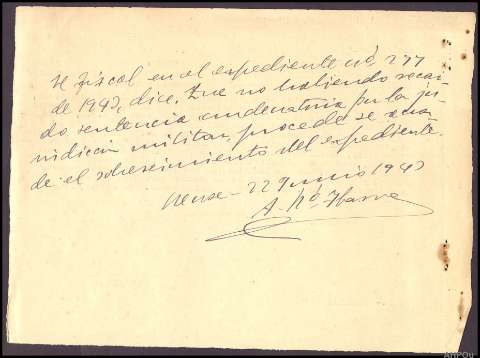 El Fiscal en el expediente nº 277
de 1943, dice. Que no habiendo recaí-
do sentencia condenatoria por la ju-
risdicción militar, procede se acuer-
de el sobreseimiento del expediente.
Orense - 22 Junio 1943
A. Nº Ibarra
AHPOu